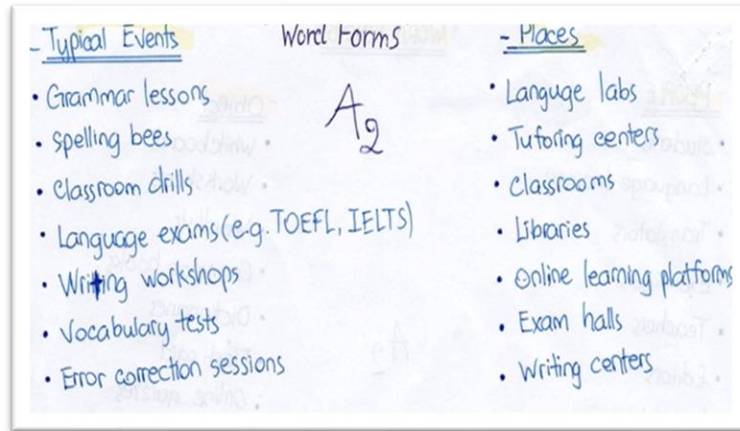 - Typical Events
• Grammar lessons
• Spelling bees
• Classroom drills
• Language exams (e.g. TOEFL, IELTS)
• Writing workshops
• Vocabulary tests
• Error correction sessions
Word Forms
A2
- Places
• Languge labs
• Tutoring centers
• Classrooms
• Libraries
• Online learning platforms
• Exam halls
• Writing centers